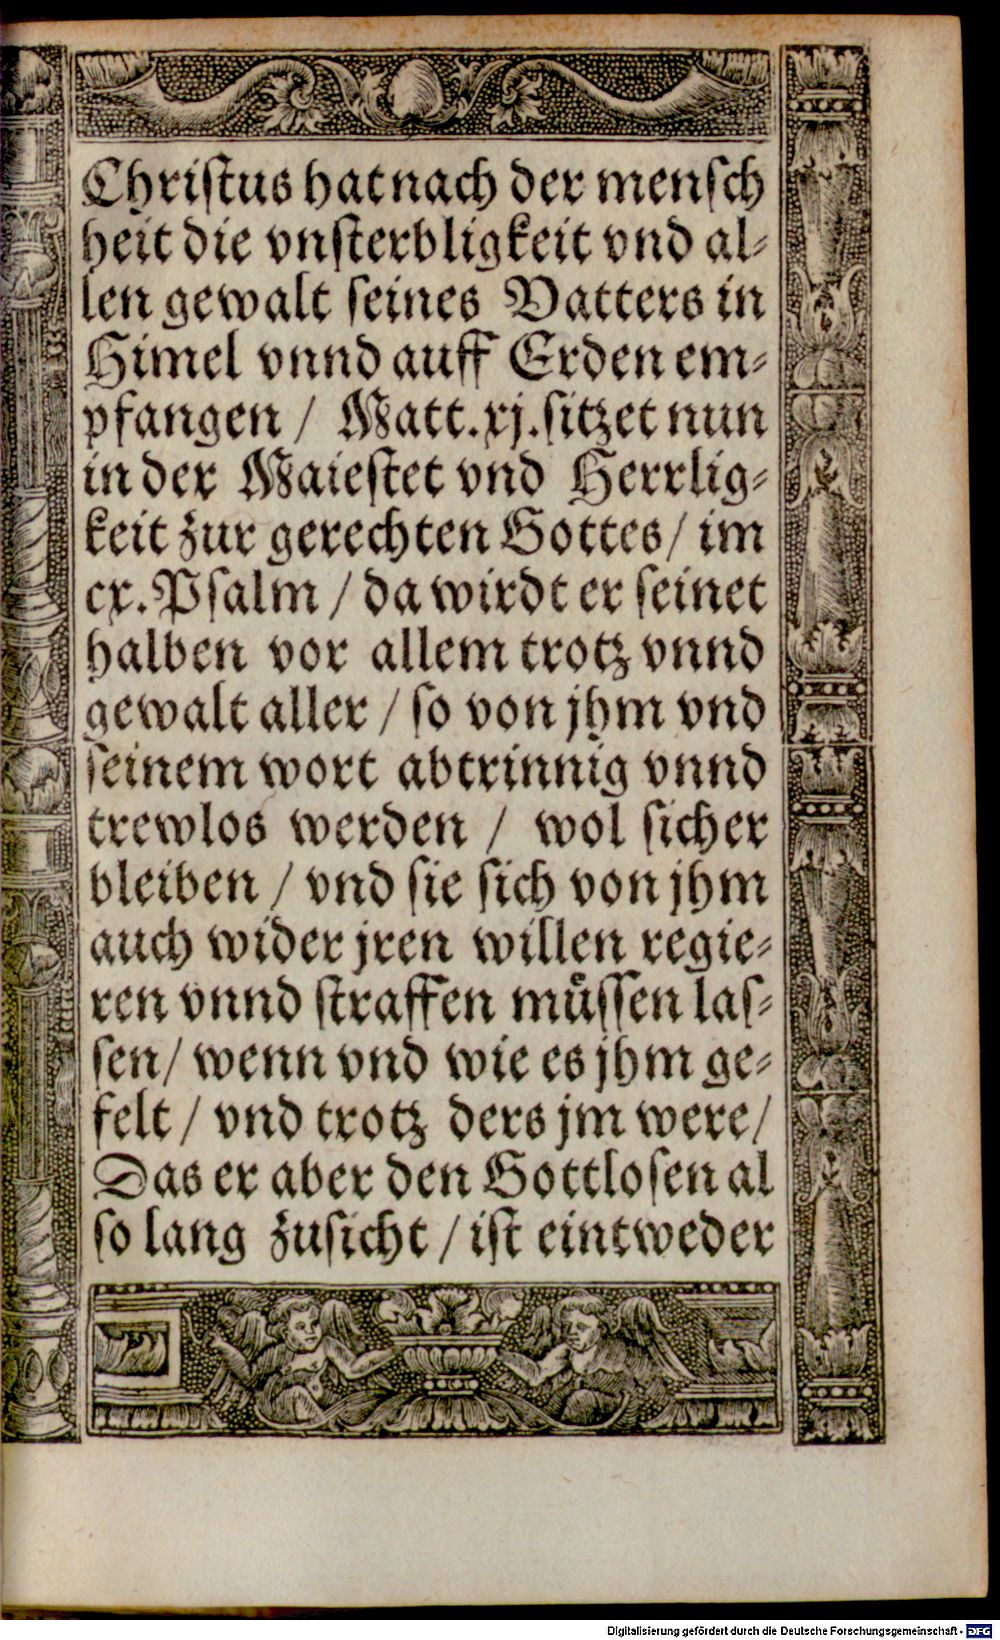 Christus hat nach der mensch
heit die vnsterbligkeit vnd al⸗
len gewalt seines Vatters in
Himel vnnd auff Erden em⸗
pfangen / Matt.xj.sitzet nun
in der Maiestet vnd Herrlig⸗
keit zur gerechten Gottes/ im
cx.Psalm / da wirdt er seinet
halben vor allem trotz vnnd
gewalt aller / so von jhm vnd
seinem wort abtrinnig vnnd
trewlos werden / wol sicher
bleiben / vnd sie sich von jhm
auch wider jren willen regie⸗
ren vnnd straffen muͤssen las⸗
sen/ wenn vnd wie es jhm ge⸗
felt / vnd trotz ders jm were/
Das er aber den Gottlosen al
so lang zusicht / ist eintweder
Digitalisierung gefördert durch die Deutsche Forschungsgemeinschaft - DFG